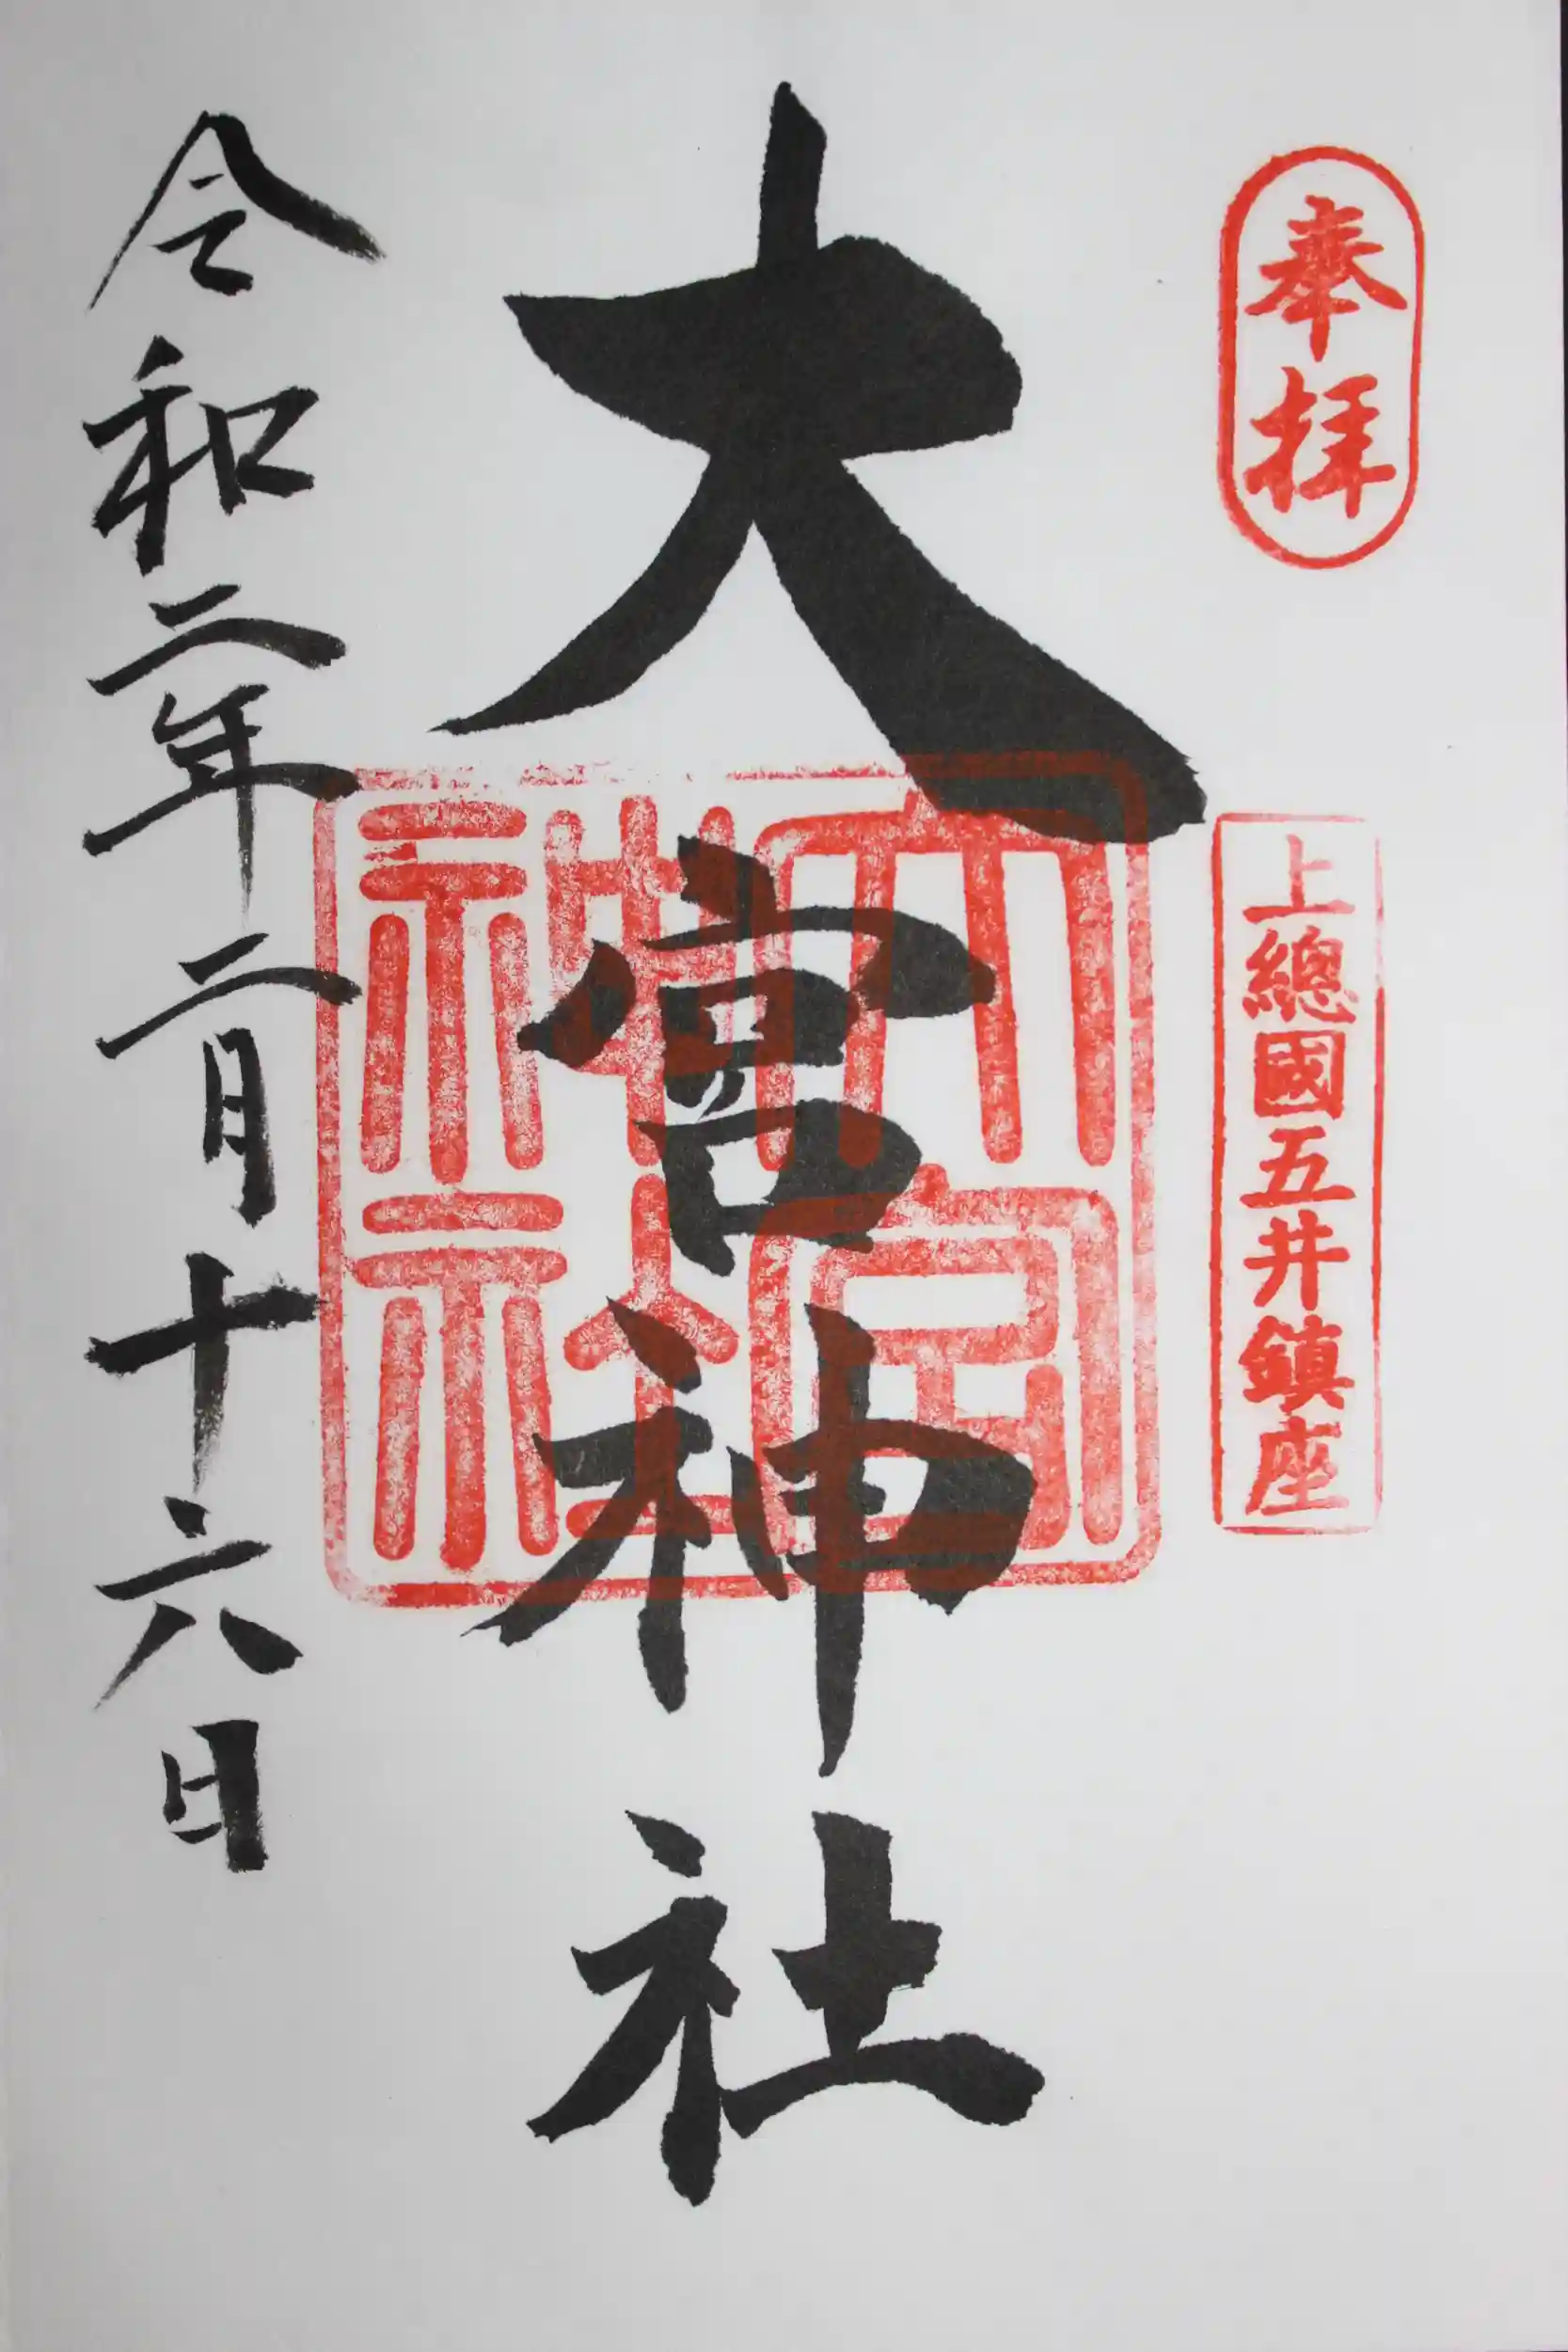 奉拝
上總國五井鎮座
大宮神社
大宮
神社
令和二年二月十六日